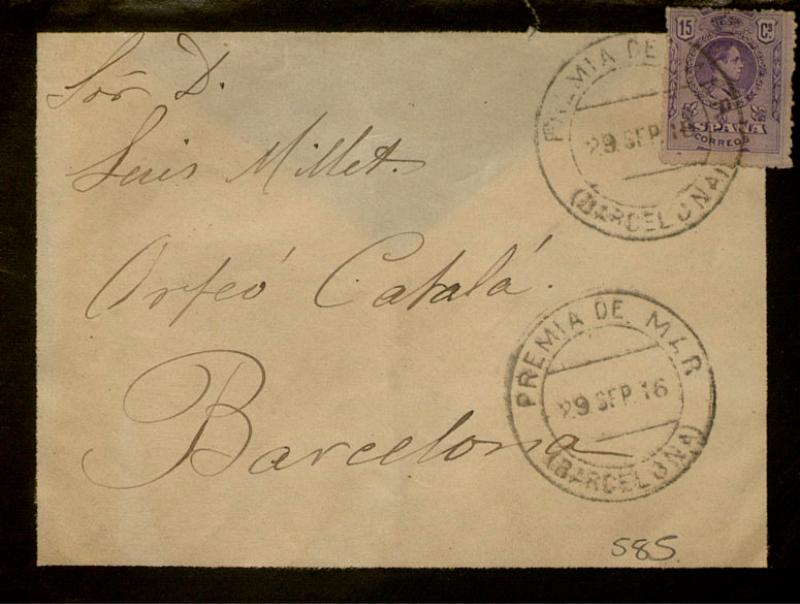 Sór D.
Luis Millet.
Orfeó Catalá.
Barcelona
15 Cs.
ESPAÑA
CORREOS
PREMIA DE MAR
29 SEP. 16
(BARCELONA)
PREMIA DE MAR
29 SEP. 16
(BARCELONA)
585